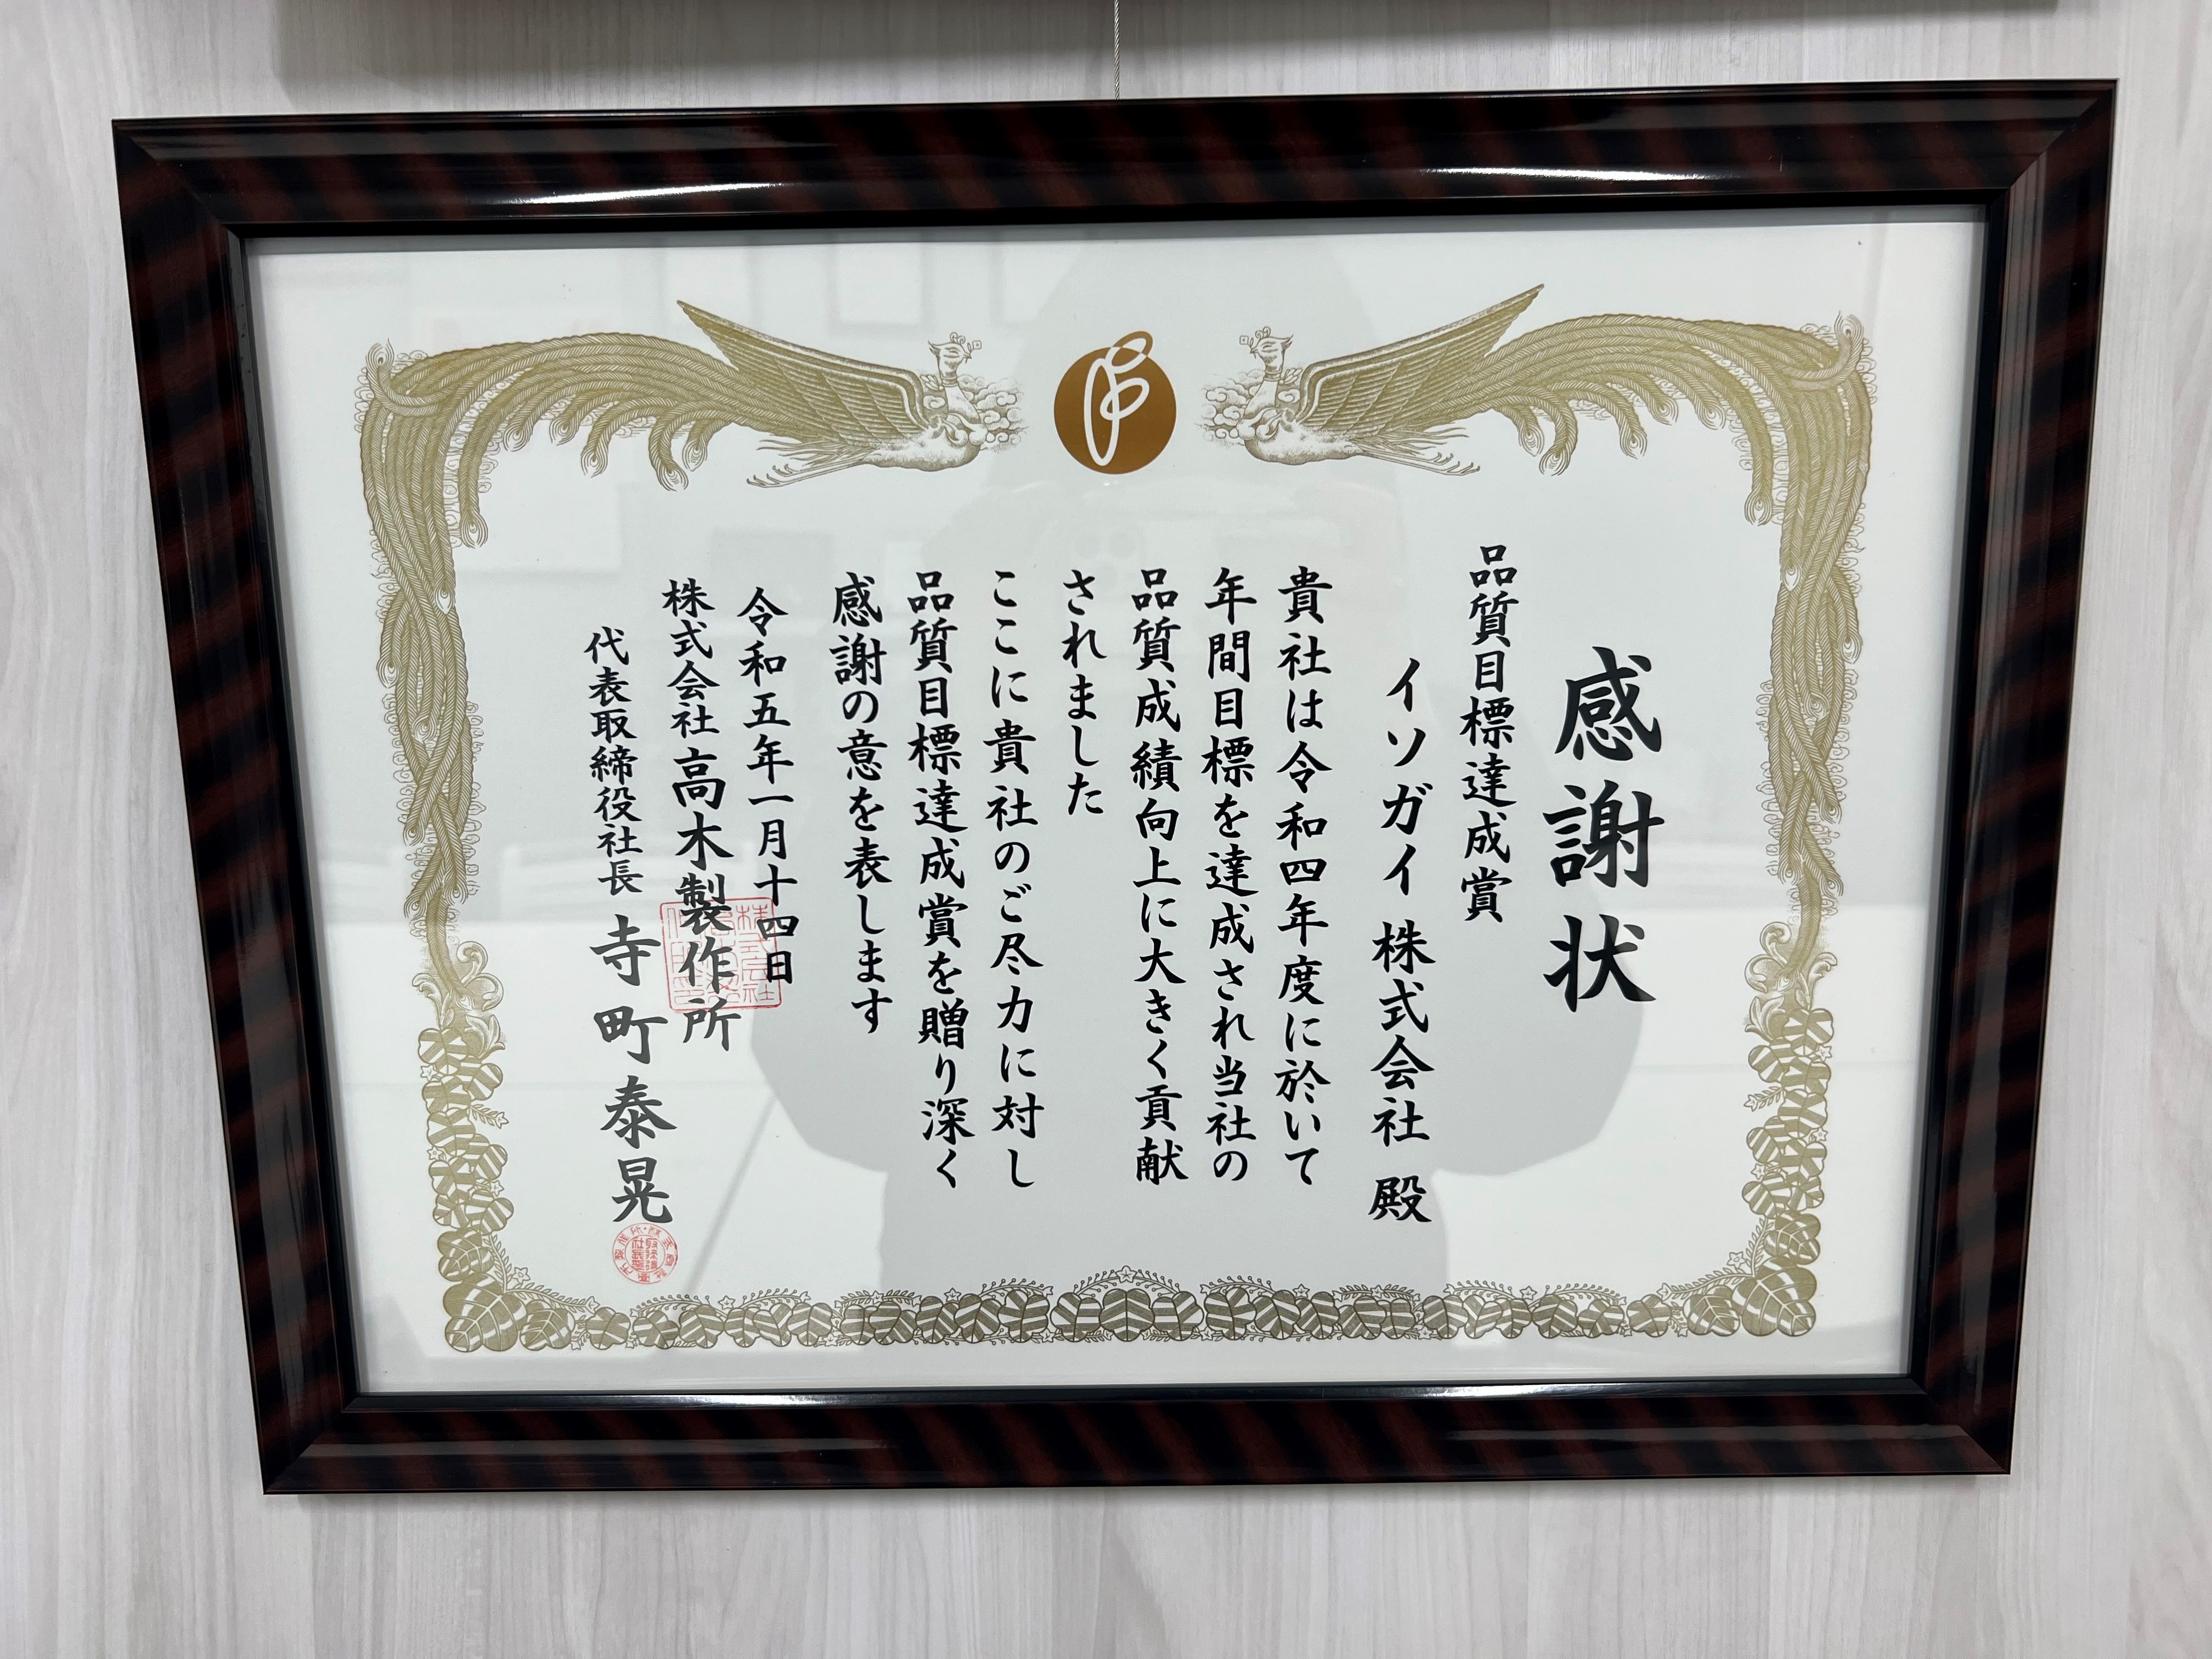 感謝状
品質目標達成賞
イソガイ株式会社 殿
貴社は令和四年度に於いて
年間目標を達成され当社の
品質成績向上に大きく貢献
されました
ここに貴社のご尽力に対し
品質目標達成賞を贈り深く
感謝の意を表します
令和五年一月十四日
株式会社高木製作所
代表取締役社長 寺町泰晃